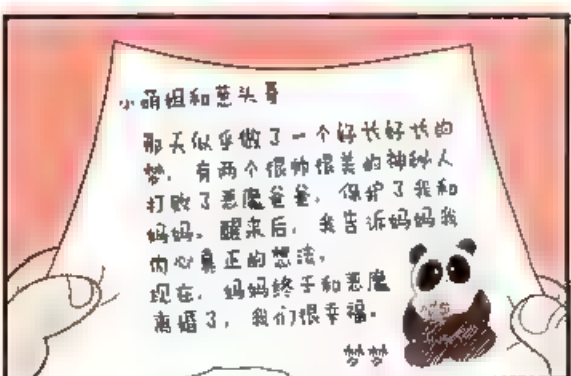 小萌姐和葱头哥
那天似乎做了一个好长好长的
梦，有两个很帅很美的神秘人
打败了恶魔爸爸，保护了我和
妈妈。醒来后，我告诉妈妈我
内心真正的想法，
现在，妈妈终于和恶魔
离婚了，我们很幸福。
梦梦